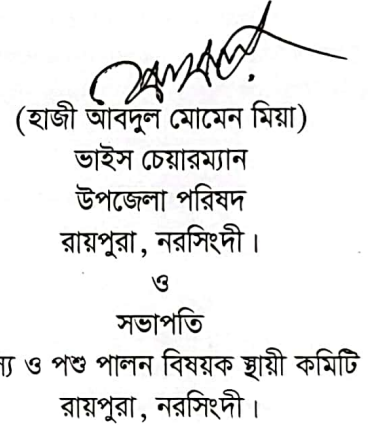 (হাজী আবদুল মোমেন মিয়া)
ভাইস চেয়ারম্যান
উপজেলা পরিষদ
রায়পুরা, নরসিংদী।
ও
সভাপতি
ও পশু পালন বিষয়ক স্থায়ী কমিটি
রায়পুরা, নরসিংদী।